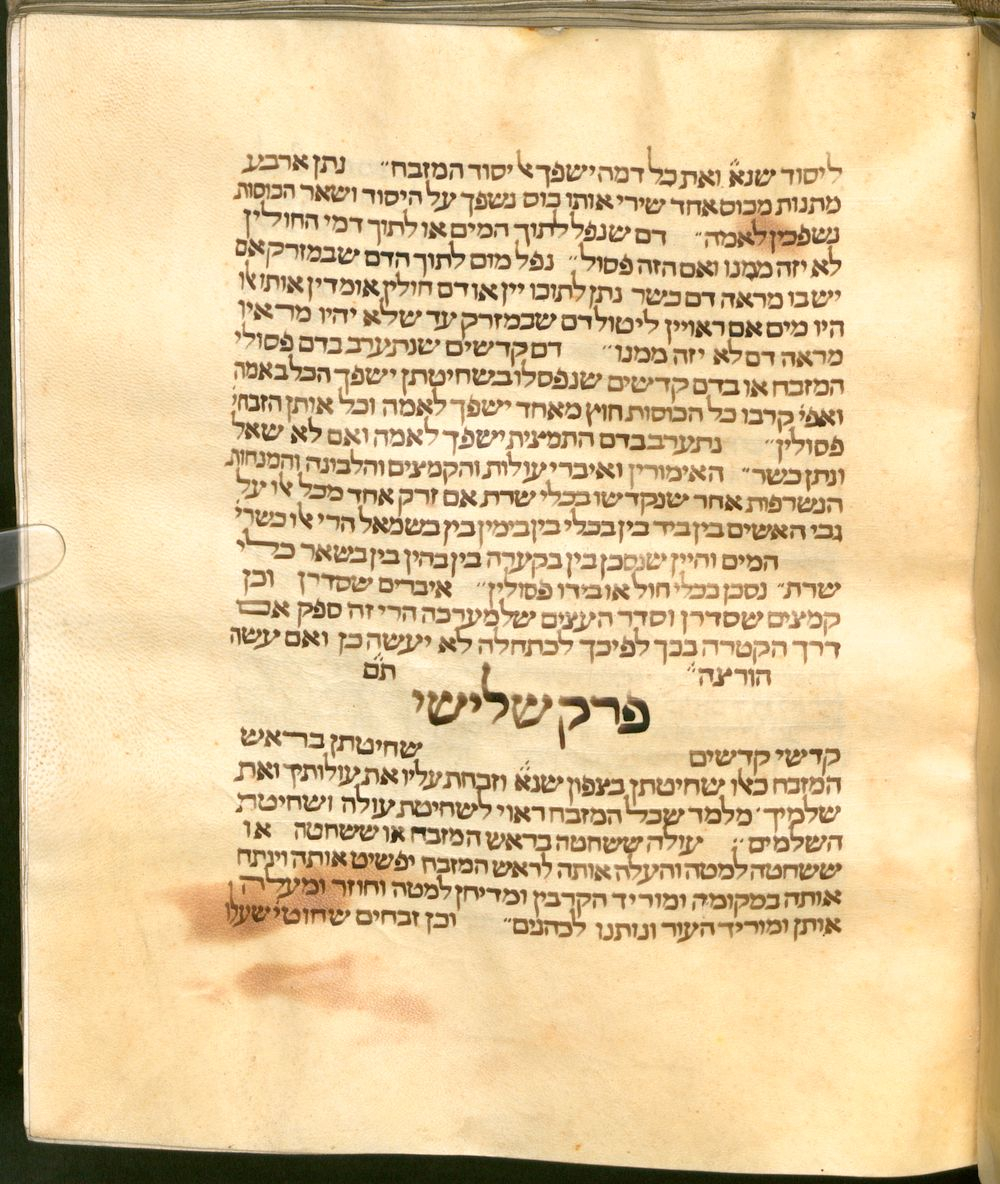 ליסוד שנא' ואת כל דמה ישפך אל יסוד המזבח״ נתן ארבע
מתנות מכוס אחד שירי אותו כוס נשפך על היסוד ושאר הכוסות
נשפכין לאמה״ דם שנפל לתוך המים או לתוך דמי החולין
לא יזה ממנו ואם הזה פסול״ נפל מום לתוך הדם שבמזרק אם
יש בו מראה דם כשר נתן לתוכו יין או דם חולין אומדין אותו אלו
היו מים אם ראויין ליטול דם שבמזרק עד שלא יהיו מר איו
מראה דם לא יזה ממנו״ דם קדשים שנתערב בדם פסולי
המזבח או בדם קדשים שנפסלו בשחיטתן ישפך הכל באמה
ואפי' קרבו כל הכוסות חוץ מאחד ישפך לאמה וכל אותן הזבחי'
פסולין״ נתערב בדם התמצית ישפך לאמה ואם לא שאל
ונתן כשר״ האימורין ואיברי עולות והקמצים והלבונה והמנחות
הנשרפות אחר שנקדשו בכלי שרת אם זרק אחד מכל אלו על
גבי האשים בין ביד בין בכלי בין בימין בין בשמאל הרי אלו כשרי'
המים והיין שנסכן בין בקערה בין בהין בין בשאר כלי
שרת״ נסכן בכלי חול או בידו פסולין״ איברים שסדרן וכן
קמצים שסדרן וסדר העצים של מערכה הרי זה ספק אם
דרך הקטרה בכך לפיכך לכתחלה לא יעשה כן ואם עשה
הורצה״ תם
פרק שלישי
קדשי קדשים שחיטתן בראש
המזבח כאלו שחיטתן בצפון שנא' וזבחת עליו את עולותיך ואת
שלמיך' מלמד שכל המזבח ראוי לשחיטת עולה ושחיטת
השלמים״ עולה ששחטה בראש המזבח או ששחטה או
ששחטה למטה והעלה אותה לראש המזבח יפשיט אותה וינתח
אותה במקומה ומוריד הקרבין ומדיחן למטה וחוזר ומעלה
אותן ומוריד העור ונותנו לכהנים״ וכן זבחים שחוטי' שעלו